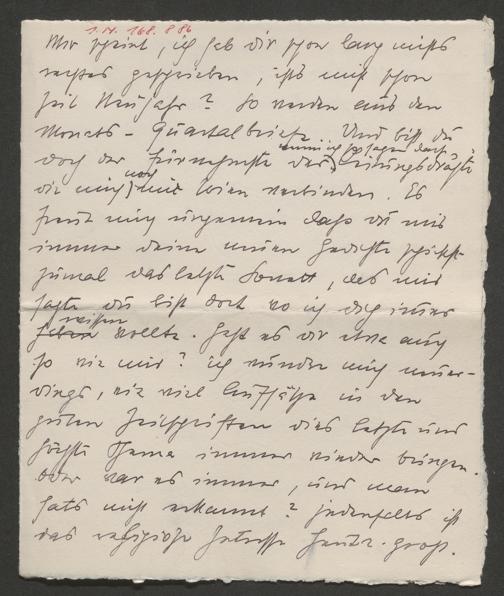 I. N. 168.886
Mir scheint, ich hab dir schon lang nichts
rechtes geschrieben, ists nicht schon
seit Neujahr? So werden aus den
Monats- Quartalbriefe. Und bist du
doch der Fürnehmste der, wenn ich so sagen darf, Leitungsdrähte
die mich noch mit Wien verbinden. Es
freut mich ungemein daß du mir
immer deine neuen Gedichte schickst
zumal das letzte Sonett, das mir
sagte du bist dort wo ich dich immer
sehen wissen wollte. Geht es dir etwa auch
so wie mir? ich wundre mich neuer-
dings, wie viel Aufsätze in den
guten Zeitschriften dies letzte und
höchste Thema immer wieder bringen.
Oder war es immer, und man
hats nicht erkannt? jedenfalls ist
das religiöse Interesse heute groß.